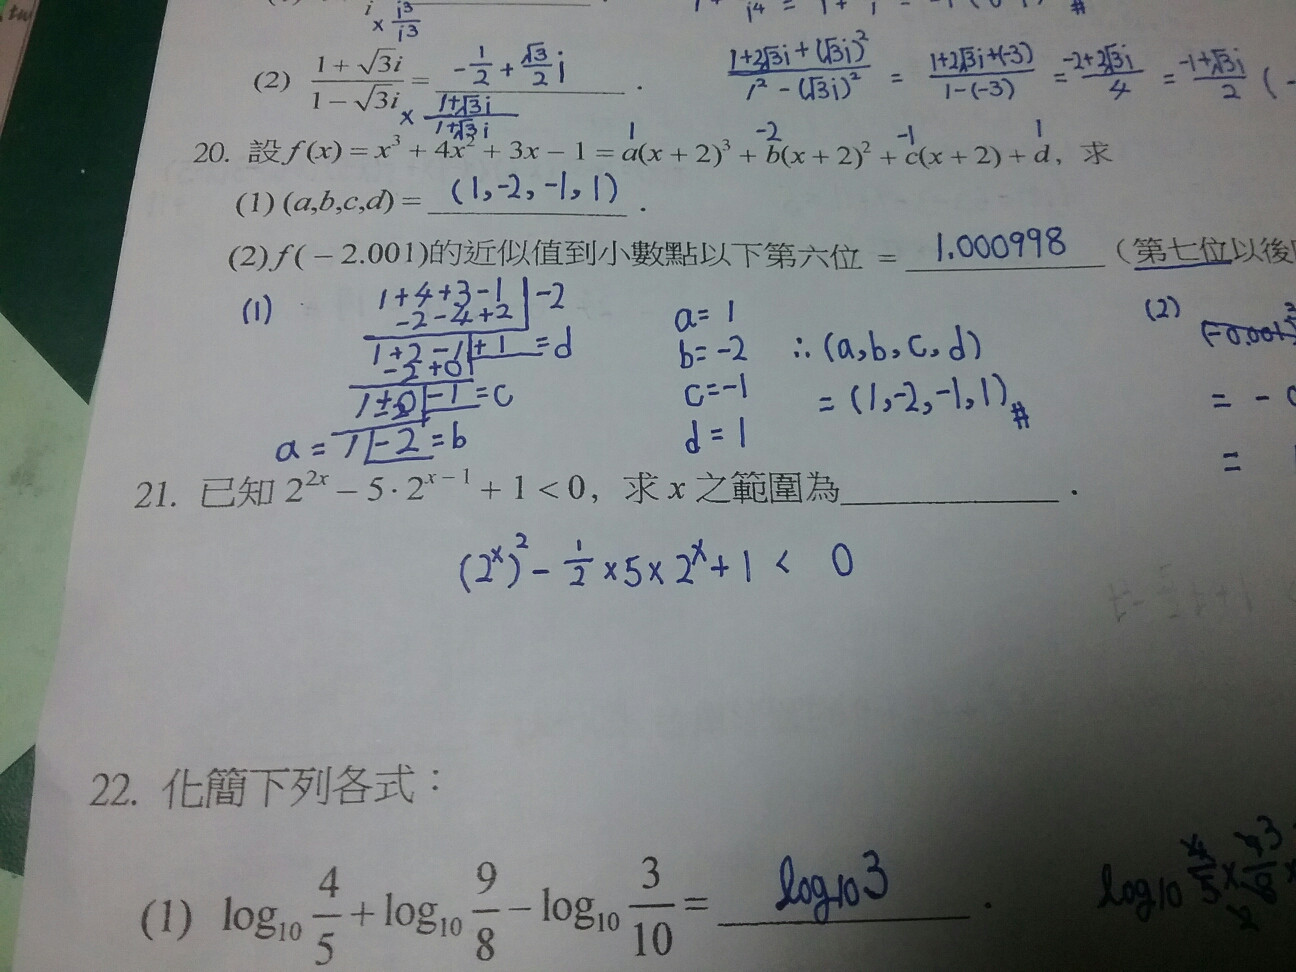 i × i³/i³
(2) (1 + √3i)/(1 − √3i) = -1/2 + √3/2 i .
× (1+√3i)/(1+√3i)
(1+2√3i+(√3i)²)/(1²-(√3i)²) = (1+2√3i+(-3))/(1-(-3)) = (-2+2√3i)/4 = (-1+√3i)/2 (-
1 -2 -1 1
20. 設 f(x) = x³ + 4x² + 3x − 1 = a(x + 2)³ + b(x + 2)² + c(x + 2) + d, 求
(1) (a,b,c,d) = (1,-2,-1,1) .
(2) f(− 2.001)的近似值到小數點以下第六位 = 1.000998 (第七位以後
(1)
1+4+3-1 | -2
-2-4+2
1+2-1 +1 = d
-2+0
1+0 -1 = c
-2
a = 1 -2 = b
a= 1
b= -2 ∴ (a,b,c,d)
c= -1 = (1,-2,-1,1)#
d = 1
(2)
= -
=
21. 已知 2²ˣ − 5 · 2ˣ⁻¹ + 1 < 0, 求 x 之範圍為 .
(2ˣ)² - 1/2 × 5 × 2ˣ + 1 < 0
22. 化簡下列各式：
(1) log₁₀ 4/5 + log₁₀ 9/8 − log₁₀ 3/10 = log₁₀3 .
log₁₀